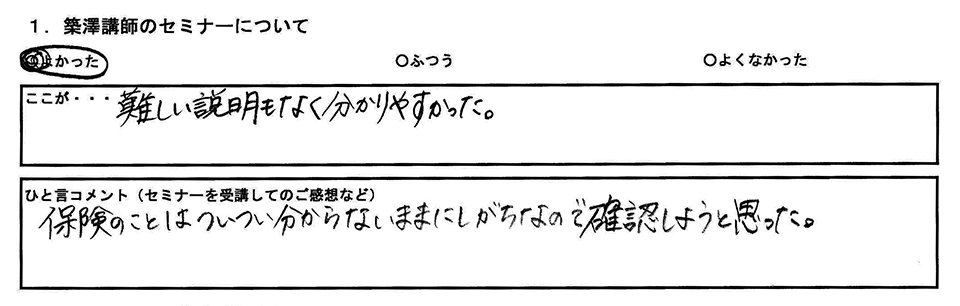 1. 築澤講師のセミナーについて
◎よかった ○ふつう ○よくなかった
ここが・・・ 難しい説明もなく分かりやすかった。
ひと言コメント（セミナーを受講してのご感想など）
保険のことはついつい分からないままにしがちなので確認しようと思った。